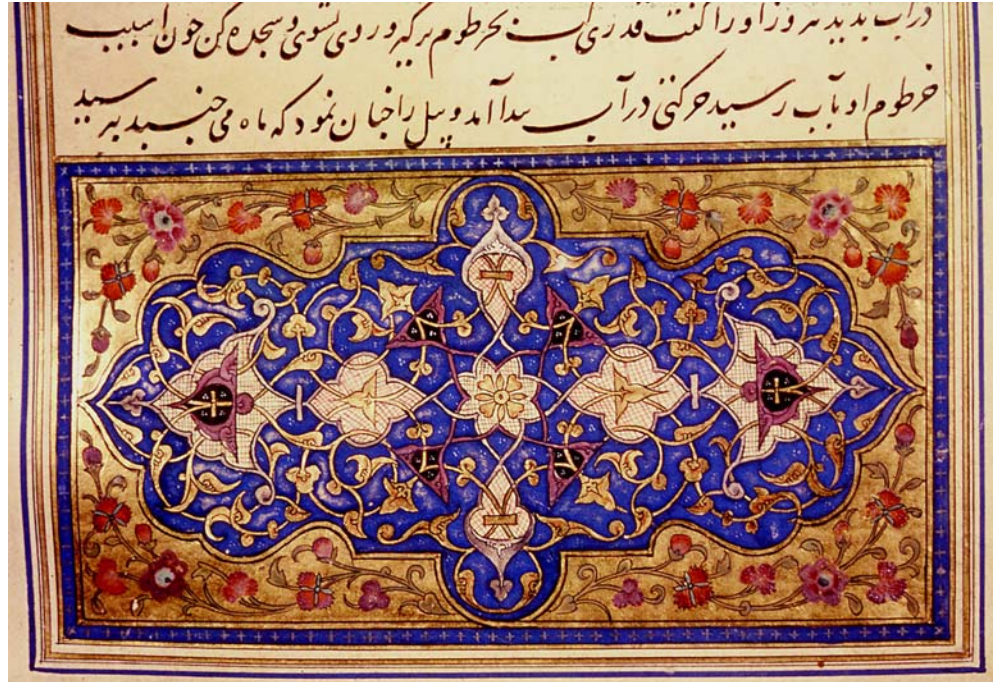 درآب بدید پیروز اورا کفت قدری آب بخرطوم برگیر و روی بشوی و سجده کن جون آسیب
خرطوم او بآب رسید حرکتی درآب پیدا آمد و پیل را جنان نمود که ماه می جنبد بترسید